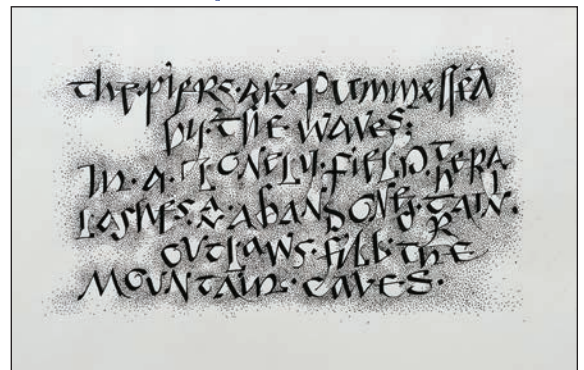 the·piers·are·pummelled
by·the·waves;
In·a·lonely·field·the rain
lashes·an·abandoned·train.
outlaws·fill·the
mountain·caves.